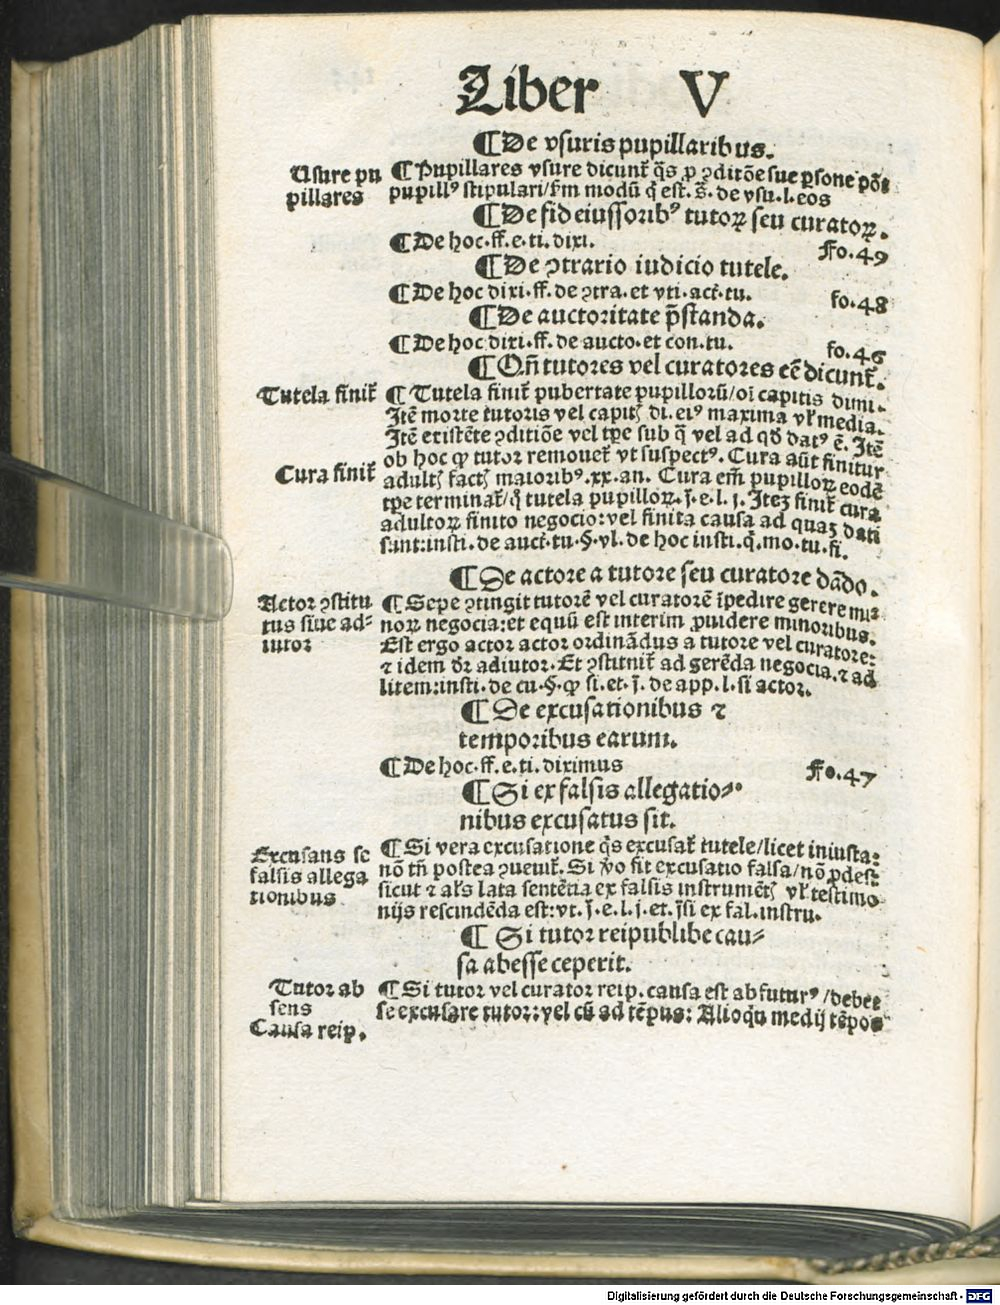 Liber V
¶ De vsuris pupillaribus.
Usure pu
pillares
¶ Pupillares vsure dicunt᷑ q̄s ꝓ ꝯditōe sue ꝑsone pōt
pupillꝰ stipulari/ẜm modū q̇ est.s̄.de vsu.l.eos
¶ De fideiussoribꝰ tutoꝝ seu curatoꝝ.
¶ De hoc.ff.e.ti.dixi.
Fo.49
¶ De ꝯtrario iudicio tutele.
¶ De hoc dixi.ff.de ꝯtra.et vti.act.tu.
fo.48
¶ De auctoritate p̄standa.
¶ De hoc dixi.ff.de aucto.et con.tu.
fo.46
¶ Qn̄ tutores vel curatores eē dicunt᷑.
Tutela finit᷑
¶ Tutela finit᷑ pubertate pupilloꝝ/oī capitis dimi-
Itē morte tutoris vel capitꝭ di.eiꝰ maxima vl᷑ media.
Itē existēte ꝯditiōe vel tꝑe sub q̄ vel ad qd̄ datꝰ ē. Itē
ob hoc ꝙ tutor remouet᷑ vt suspectꝰ. Cura aūt finitur
Cura finit᷑
adultꝭ factꝭ maioribꝰ.xx.an. Cura em̄ pupilloꝝ eodē
tꝑe terminat᷑/q̇ tutela pupilloꝝ.j̄.e.l.j. Iteꝫ finit᷑ cura
adultoꝝ finito negocio:vel finita causa ad quaꝫ dati
sunt:insti.de auct.tu.§.vl.de hoc insti.q̄.mo.tu.fi.
¶ De actore a tutore seu curatore dādo.
Actor ꝯstitu
tus siue ad-
iutor
¶ Sepe ꝯtingit tutorē vel curatorē īpedire gerere mi-
noꝝ negocia:et equū est interim ꝓuidere minoribus.
Est ergo actor actor ordinādus a tutore vel curatore:
⁊ idem dr̄ adiutor. Et ꝯstituit᷑ ad gerēda negocia.⁊ ad
litem:insti.de cu.§.ꝙ si.et.j̄.de app.l.si actor.
¶ De excusationibus ⁊
temporibus earum.
¶ De hoc.ff.e.ti.diximus
Fo.47
¶ Si ex falsis allegatio-
nibus excusatus sit.
Excusans se
falsis allega
tionibus
¶ Si vera excusatione q̄s excusat᷑ tutele/licet iniusta:
nō tn̄ postea ꝯuenit᷑. Si ṽo fit excusatio falsa/nō ꝓdest:
sicut ⁊ al᷑s lata sentētia ex falsis instrumētꝭ vl᷑ testimo
nijs rescindēda est:vt.j̄.e.l.j.et.j̄si ex fal.instru.
¶ Si tutor reipublibe cau-
sa abesse ceperit.
Tutor ab
sens
Causa reip.
¶ Si tutor vel curator reip. causa est abfuturꝰ/debet
se excusare tutor:vel cū ad tēpus: Alioqū medij tēpo
Digitalisierung gefördert durch die Deutsche Forschungsgemeinschaft - DFG